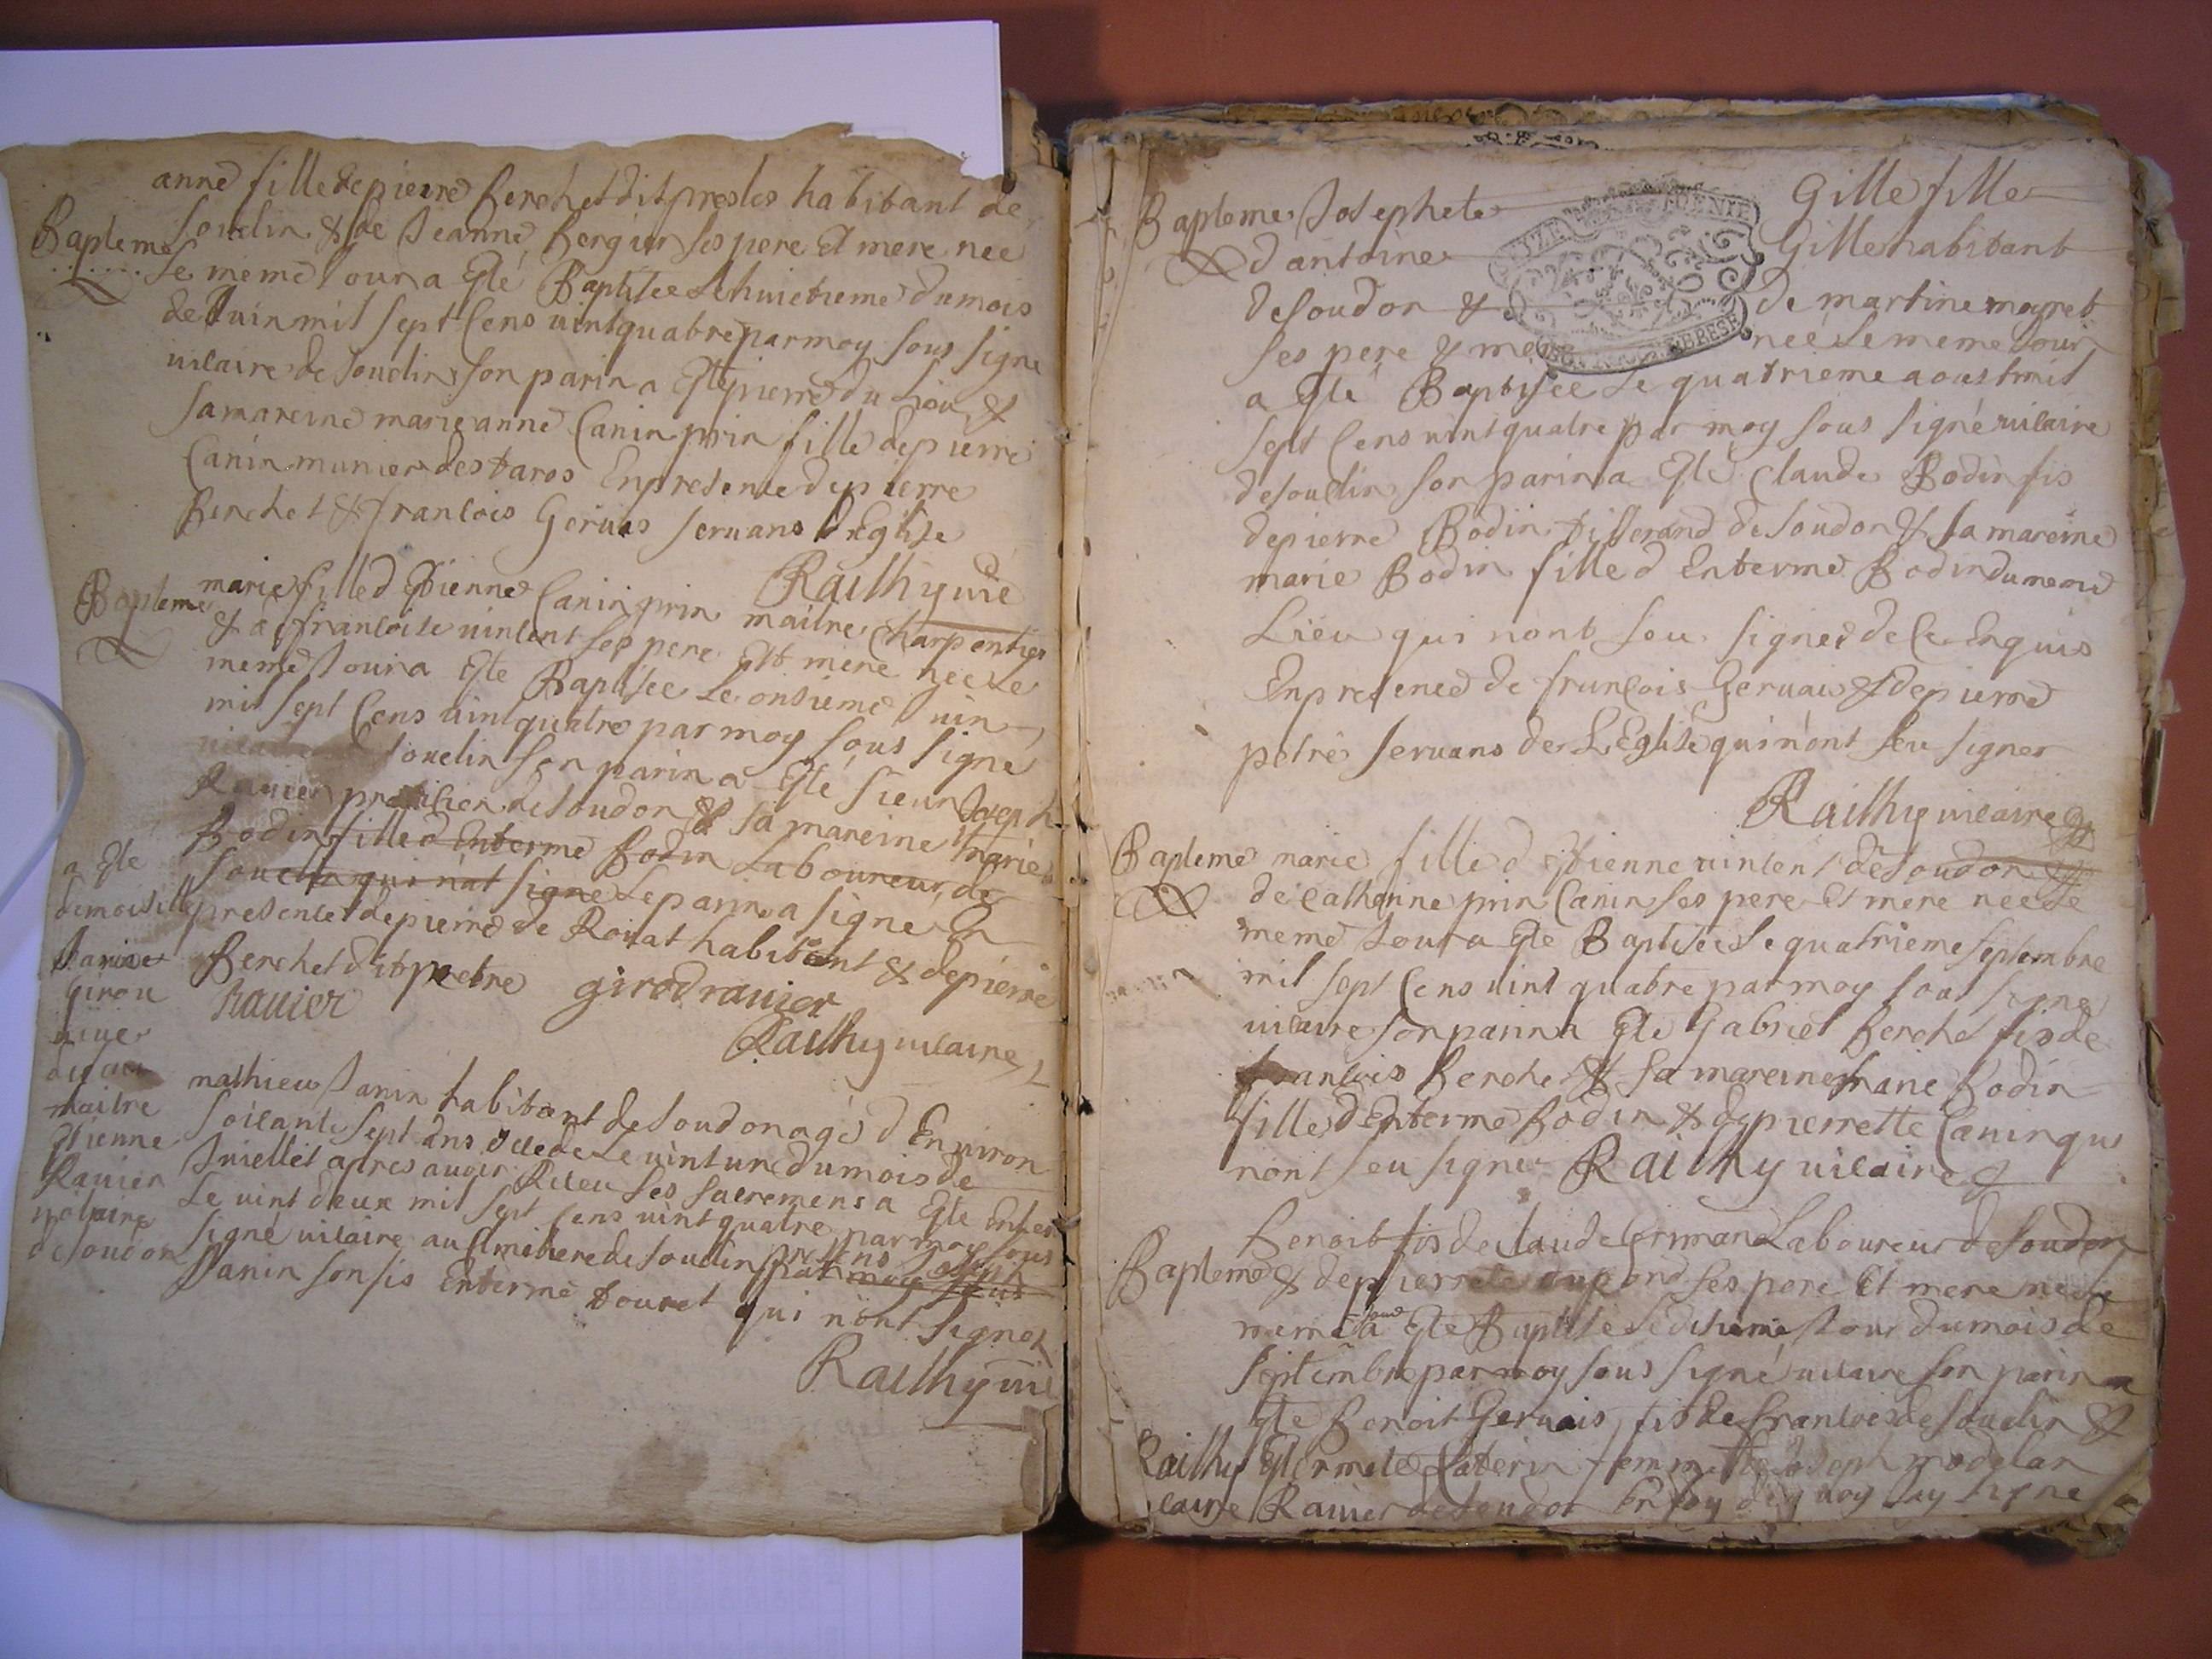 anne fille de pierre berchet dit presles habitant de
Bapteme souclin & de Jeanne bergier ses pere Et mere nee
le meme Jour a Eté Baptisee Le huictieme du mois
de Juin mil sept Cens vint quatre par moy sous signe
vicaire de souclin son parin a Eté pierre du &
sa mareine marie anne Canin prin fille de pierre
Canin munier des taros En presence de pierre
Berchet & francois Geruais seruans l Eglise
Railhy vic
Bapteme marie fille d Etienne Canin prin maitre Charpentier
& de francoise uincent ses pere Et mere nee Le
meme Jour a Ete Baptisée Le onsieme Juin
mil sept Cens vint quatre par moy sous signé
vicaire souclin son parin a Eté sieur Joseph
Rauier praticien de soudon & sa mareine marie
Bodin fille d Enterme Bodin Laboureur de
souclin qui nat signe Le parin a signé En
presence de pierre de Rouat habitant & de pierre
Berchet dit pretre
rauier girod rauier
Railhy vicaire
a Ete
demoiselle
Janine
Girou
maitre
Etienne
Rauier
notaire
de soudon
mathieu Janin habitant de soudon agé d Enuiron
soicante sept ans decede Le vint un du mois de
Juiellet apres auoir Receu ses sacremens a Ete Enter
Le vint deux mil sept Cens vint quatre par moy sous
signé vicaire au Cimetiere de souclin presens Joseph par moy sous
Janin son fis Enterme touret qui n ont signer
Railhy vic
Bapteme Josephete Gille fille
d antoine Gille habitant
de soudon & de martine moyret
ses pere & mere neé Le meme Jour
a Eté Baptisée Le quatrieme aoust mil
sept Cens vint quatre par moy sous signé vicaire
de souclin son parin a Eté Claude Bodin fis
de pierre Bodin tisserand de soudon & sa mareine
marie Bodin fille d Enterme Bodin du meme
Lieu qui n ont seu signer de Ce Enquis
En presence de francois Geruais & de pierre
petre seruans de L Eglise qui n ont seu signer
Railhy vicaire
Bapteme marie fille d Etienne vincent de soudon &
de Catherine prin Canin ses pere Et mere nee Le
meme Jour a Ete Baptisée Le quatrieme septembre
mil sept Cens vint quatre par moy sous signe
vicaire son parin a Ete Gabriel Berche fis de
francois Berche & sa mareine marie Bodin
fille d Enterme Bodin & de pierrette Canin qui
n ont seu signer Railhy vicaire
Benoit fis de Claude Cormand Laboureur de soudon
Bapteme & de pierrete dupond ses pere Et mere né Le
meme jour a Ete Baptisé Le disieme Jour du mois de
septembre par moy sous signé vicaire son parin a
Ete Benoit Geruais fis de francois de souclin &
Railhy femme de Joseph
caire Rauier de soudon En foy de quoy Jay signe